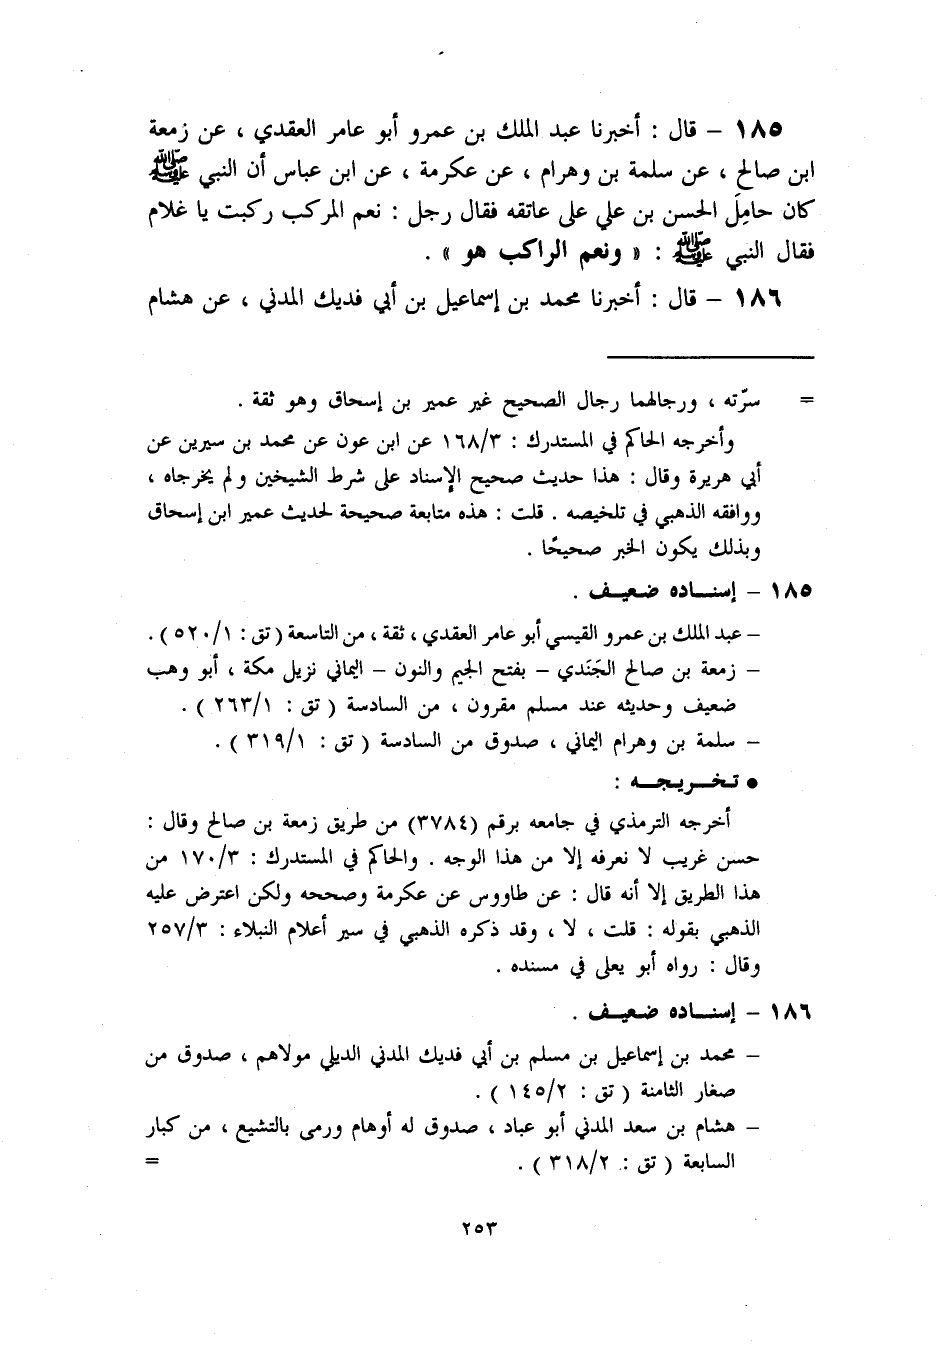 ١٨٥ – قال : أخبرنا عبد الملك بن عمرو أبو عامر العقدي ، عن زمعة
ابن صالح ، عن سلمة بن وهرام ، عن عكرمة ، عن ابن عباس أن النبي ﷺ
كان حامِلَ الحسن بن علي على عاتقه فقال رجل : نعم المركب ركبت يا غلام
فقال النبي ﷺ : « ونعم الراكب هو » .
١٨٦ – قال : أخبرنا محمد بن إسماعيل بن أبي فديك المدني ، عن هشام
= سرّته ، ورجالهما رجال الصحيح غير عمير بن إسحاق وهو ثقة .
وأخرجه الحاكم في المستدرك : ١٦٨/٣ عن ابن عون عن محمد بن سيرين عن
أبي هريرة وقال : هذا حديث صحيح الإسناد على شرط الشيخين ولم يخرجاه ،
ووافقه الذهبي في تلخيصه . قلت : هذه متابعة صحيحة لحديث عمير ابن إسحاق
وبذلك يكون الخبر صحيحًا .
١٨٥ – إسناده ضعيف .
– عبد الملك بن عمرو القيسي أبو عامر العقدي ، ثقة ، من التاسعة ( تق : ٥٢٠/١ ) .
– زمعة بن صالح الجَنَدي – بفتح الجيم والنون – اليماني نزيل مكة ، أبو وهب
ضعيف وحديثه عند مسلم مقرون ، من السادسة ( تق : ٢٦٣/١ ) .
– سلمة بن وهرام اليماني ، صدوق من السادسة ( تق : ٣١٩/١ ) .
● تخريجه :
أخرجه الترمذي في جامعه برقم (٣٧٨٤) من طريق زمعة بن صالح وقال :
حسن غريب لا نعرفه إلا من هذا الوجه . والحاكم في المستدرك : ١٧٠/٣ من
هذا الطريق إلا أنه قال : عن طاووس عن عكرمة وصححه ولكن اعترض عليه
الذهبي بقوله : قلت ، لا ، وقد ذكره الذهبي في سير أعلام النبلاء : ٢٥٧/٣
وقال : رواه أبو يعلى في مسنده .
١٨٦ – إسناده ضعيف .
– محمد بن إسماعيل بن مسلم بن أبي فديك المدني الديلي مولاهم ، صدوق من
صغار الثامنة ( تق : ١٤٥/٢ ) .
– هشام بن سعد المدني أبو عباد ، صدوق له أوهام ورمى بالتشيع ، من كبار
السابعة ( تق : ٣١٨/٢ ) . =
٢٥٣